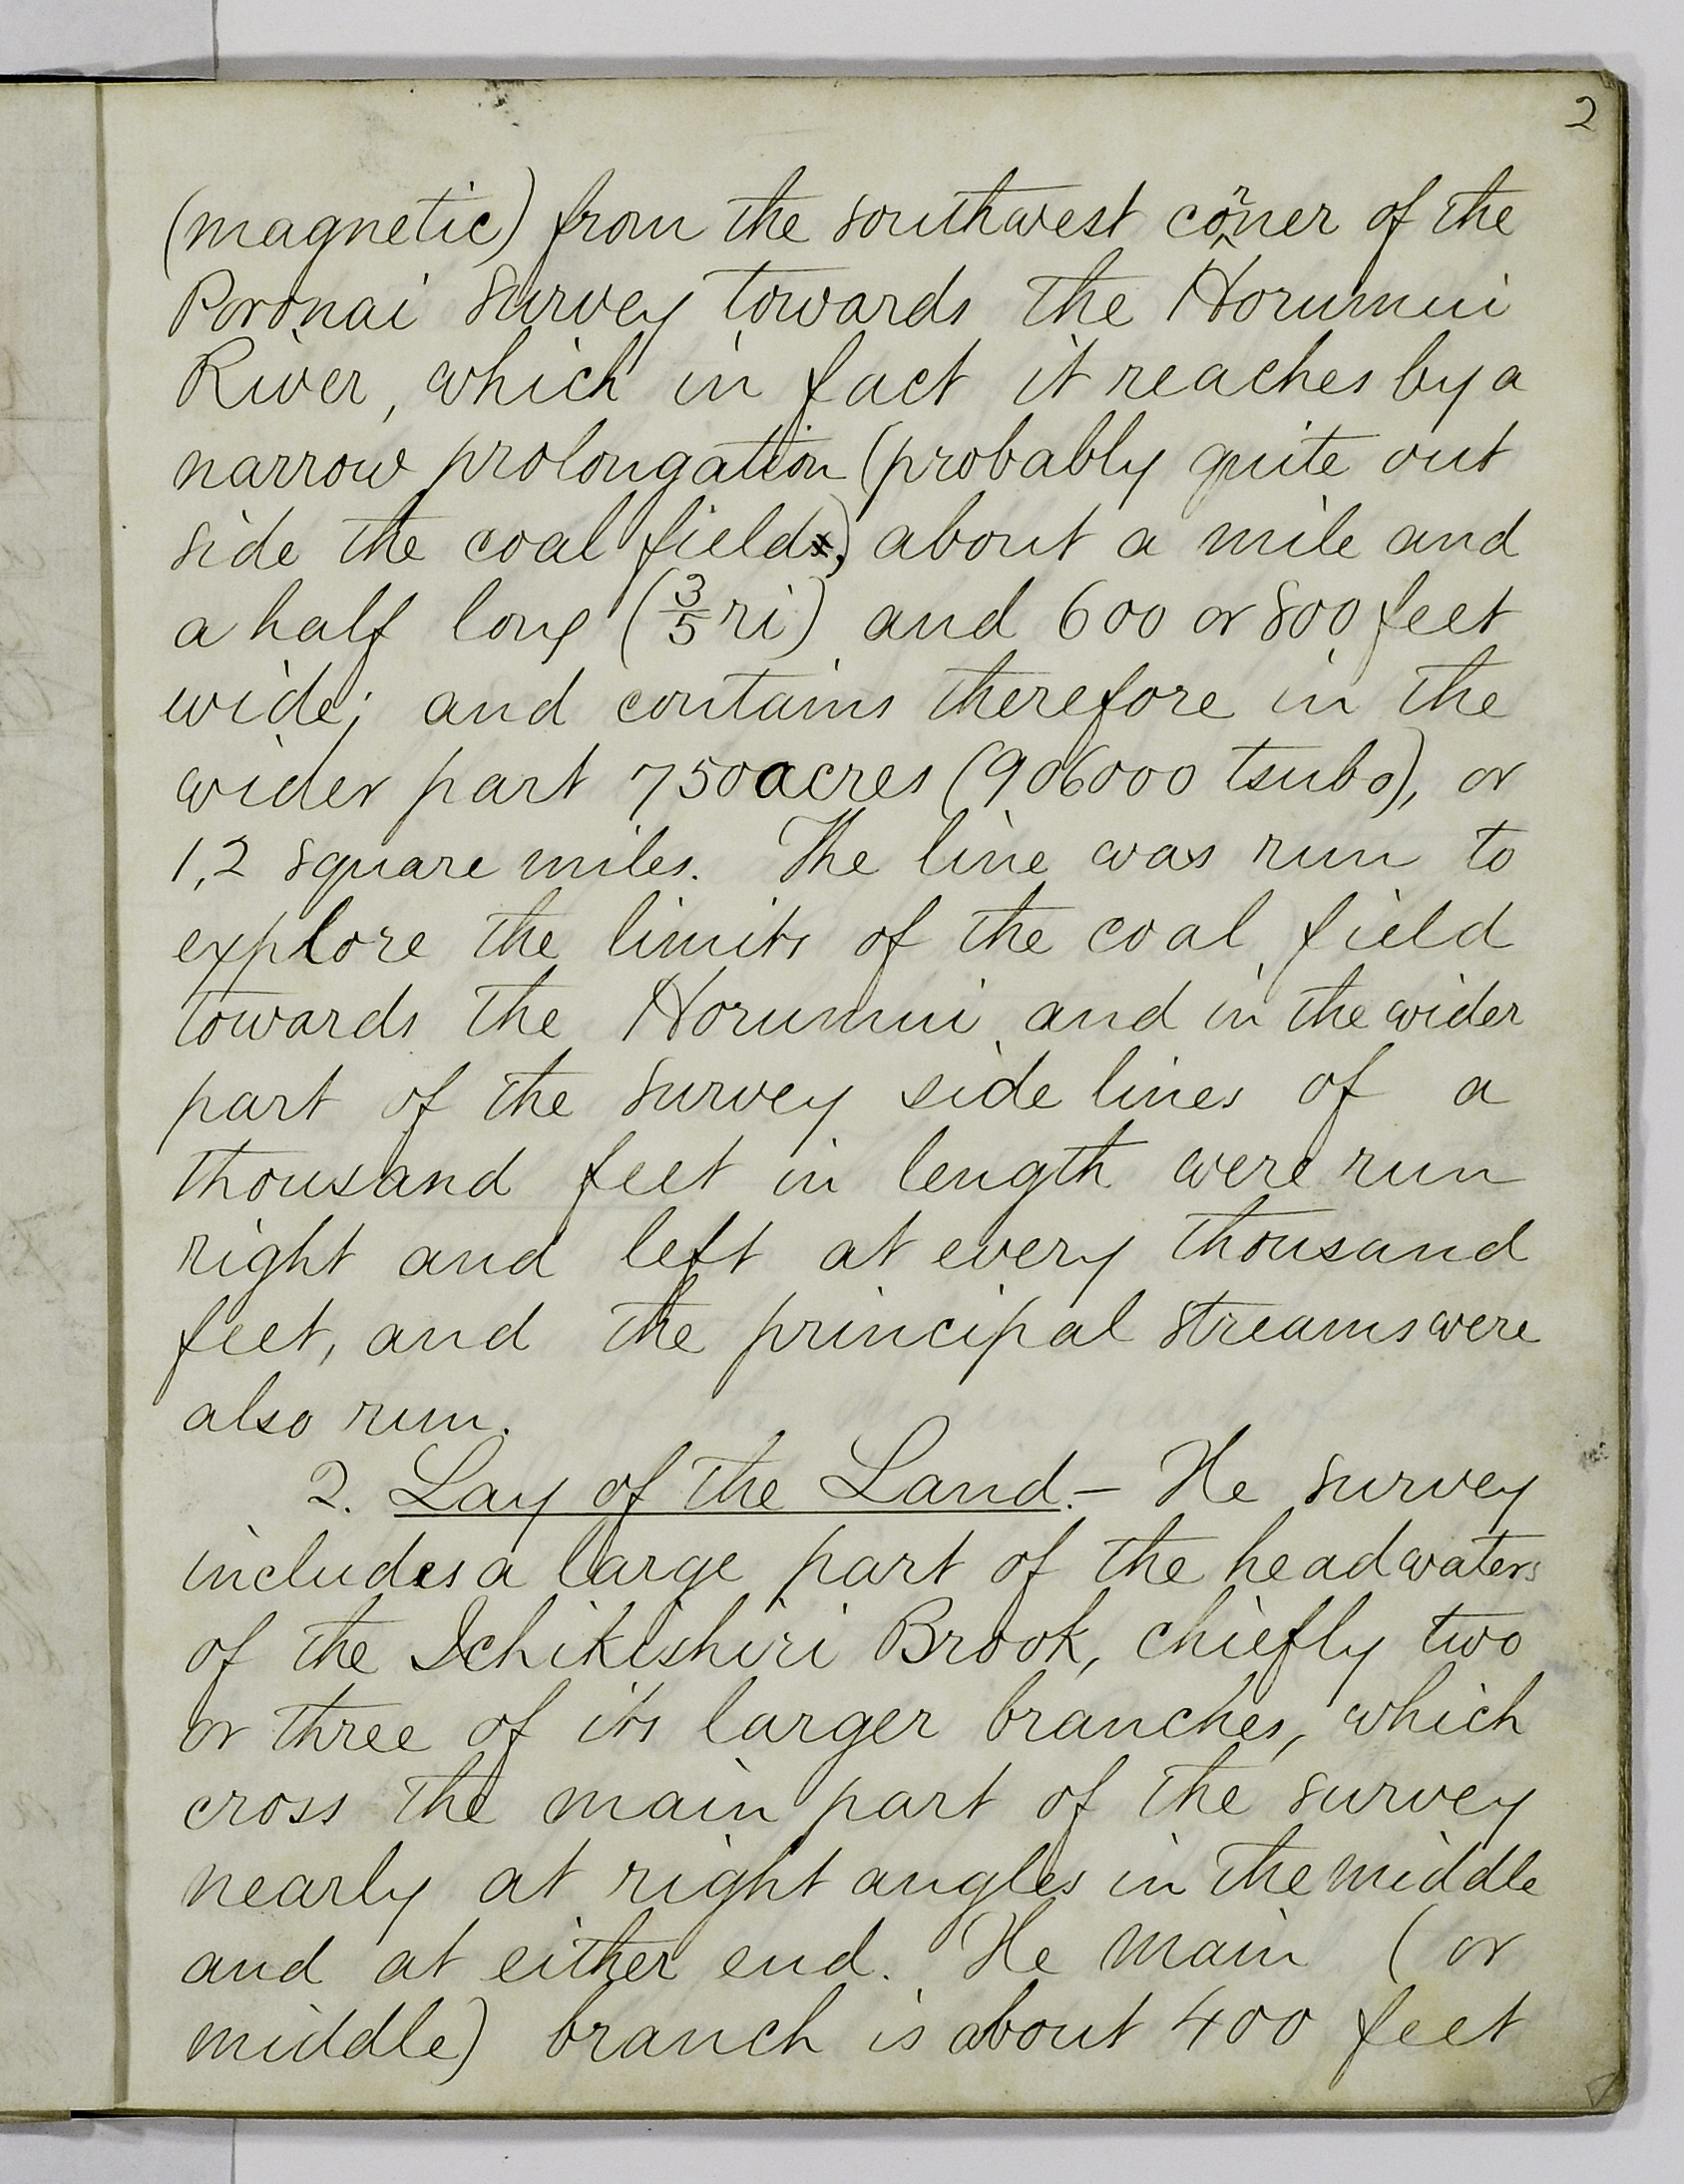 2
(magnetic) from the southwest corner of the
Poronai survey towards the Horumui
River, which in fact it reaches by a
narrow prolongation (probably quite out
side the coal field), about a mile and
a half long (3/5 ri) and 600 or 800 feet
wide; and contains therefore in the
wider part 750 acres (906000 tsubo), or
1,2 square miles. The line was run to
explore the limits of the coal field
towards the Horumui and in the wider
part of the survey side lines of a
thousand feet in length were run
right and left at every thousand
feet, and the principal streams were
also run.
2. Lay of the Land.— The survey
includes a large part of the headwaters
of the Ichikishiri Brook, chiefly two
or three of its larger branches, which
cross the main part of the survey
nearly at right angles in the middle
and at either end. The main (or
middle) branch is about 400 feet